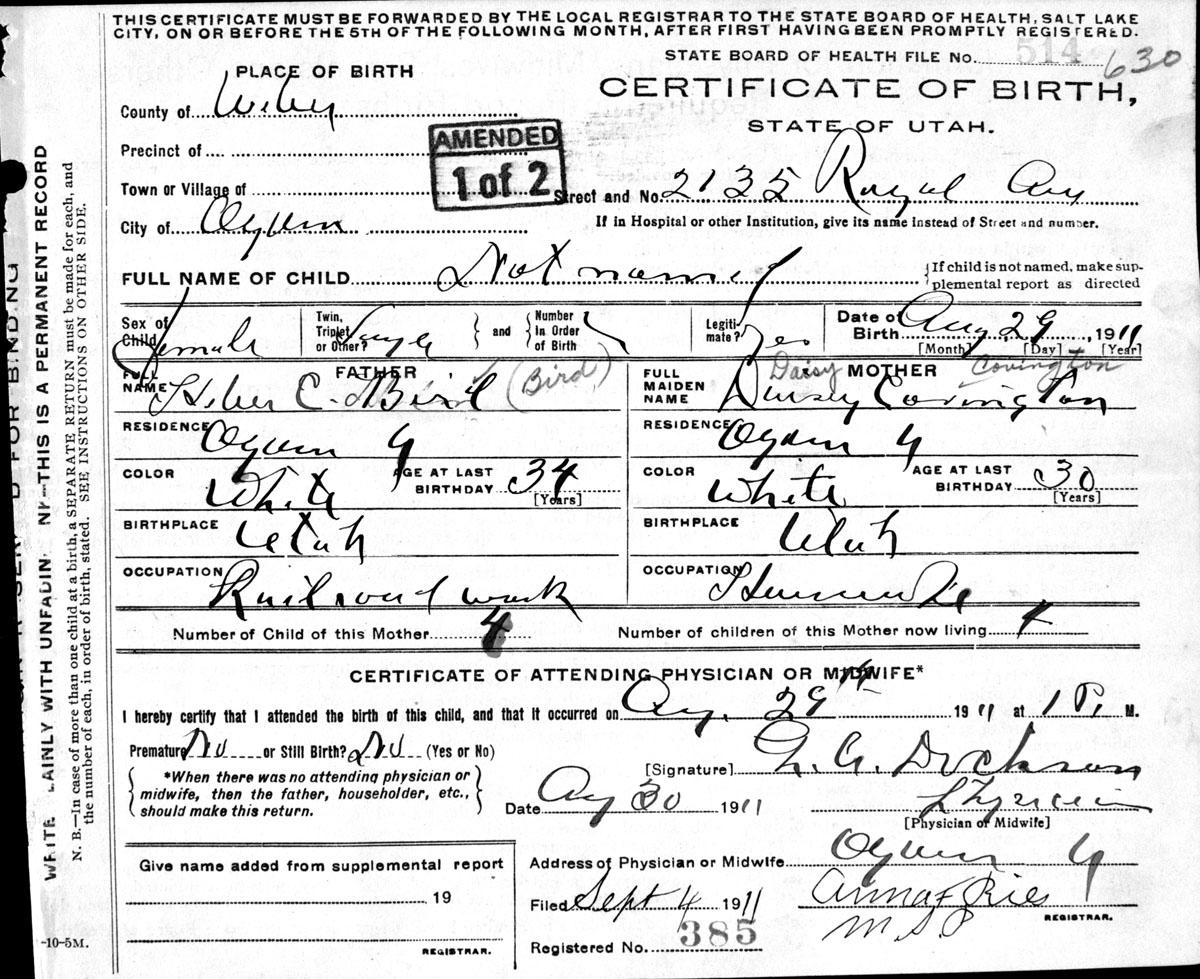 THIS CERTIFICATE MUST BE FORWARDED BY THE LOCAL REGISTRAR TO THE STATE BOARD OF HEALTH, SALT LAKE
CITY, ON OR BEFORE THE 5TH OF THE FOLLOWING MONTH, AFTER FIRST HAVING BEEN PROMPTLY REGISTERED.
STATE BOARD OF HEALTH FILE No. 514 630
PLACE OF BIRTH
CERTIFICATE OF BIRTH,
STATE OF UTAH.
County of Weber
Precinct of
AMENDED
1 of 2
Town or Village of
Street and No. 2135 Royal Ave
City of Ogden
If in Hospital or other Institution, give its name instead of Street and number.
FULL NAME OF CHILD Not named
{If child is not named, make sup-
plemental report as directed
Sex of Child Female
Twin, Triplet or Other? } and { Number In Order of Birth
Legiti-mate? Yes
Date of Birth Aug 29, 1911
[Month] [Day] [Year]
FATHER
FULL NAME Heber C. Bird (Bird)
MOTHER
FULL MAIDEN NAME Daisy Covington
Covington
RESIDENCE Ogden U
RESIDENCE Ogden U
COLOR White
AGE AT LAST BIRTHDAY 34
[Years]
COLOR White
AGE AT LAST BIRTHDAY 30
[Years]
BIRTHPLACE Utah
BIRTHPLACE Utah
OCCUPATION Railroad work
OCCUPATION
Number of Child of this Mother 4
Number of children of this Mother now living 4
CERTIFICATE OF ATTENDING PHYSICIAN OR MIDWIFE*
I hereby certify that I attended the birth of this child, and that it occurred on Aug. 29th 1911 at 1 P. M.
Premature No or Still Birth? No (Yes or No)
{*When there was no attending physician or
midwife, then the father, householder, etc.,
should make this return.}
[Signature] Dickson
Date Aug 30 1911
Physician
[Physician or Midwife]
Give name added from supplemental report
19
REGISTRAR.
Address of Physician or Midwife Ogden U
Filed Sept 4 1911
Anna F Ries
M.S.P
REGISTRAR.
Registered No. 385
-10-5M.
N. B.—In case of more than one child at a birth, a SEPARATE RETURN must be made for each, and
the number of each, in order of birth, stated. SEE INSTRUCTIONS ON OTHER SIDE.
WRITE LAINLY WITH UNFADIN NK—THIS IS A PERMANENT RECORD
FOR BINDING